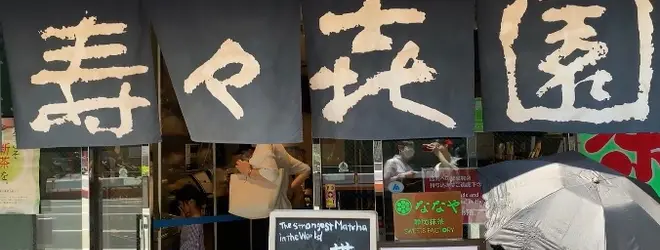 寿々喜園
新茶
The strongest Matcha
in the World
ななや
静岡抹茶
SWEETS FACTORY
茶